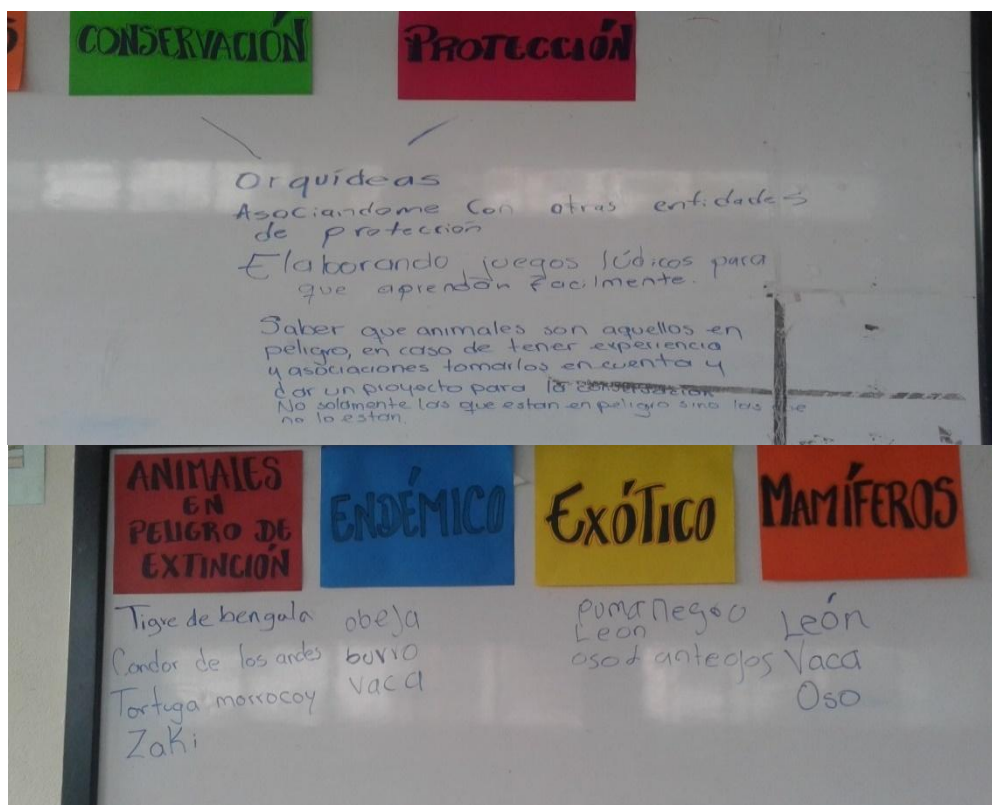 S
CONSERVACIÓN
PROTECCIÓN
Orquídeas
Asociandome con otras entidades
de protección
Elaborando juegos lúdicos para
que aprendan facilmente.
Saber que animales son aquellos en
peligro, en caso de tener experiencia
y asociaciones tomarlos en cuenta y
dar un proyecto para la conservación
No solamente los que estan en peligro sino los
no lo estan.
ANIMALES
EN
PELIGRO DE
EXTINCIÓN
Tigre de bengala
Condor de los andes
Tortuga morrocoy
Zaki
ENDÉMICO
obeja
burro
vaca
EXÓTICO
puma negro
Leon
oso d anteojos
MAMÍFEROS
León
Vaca
Oso